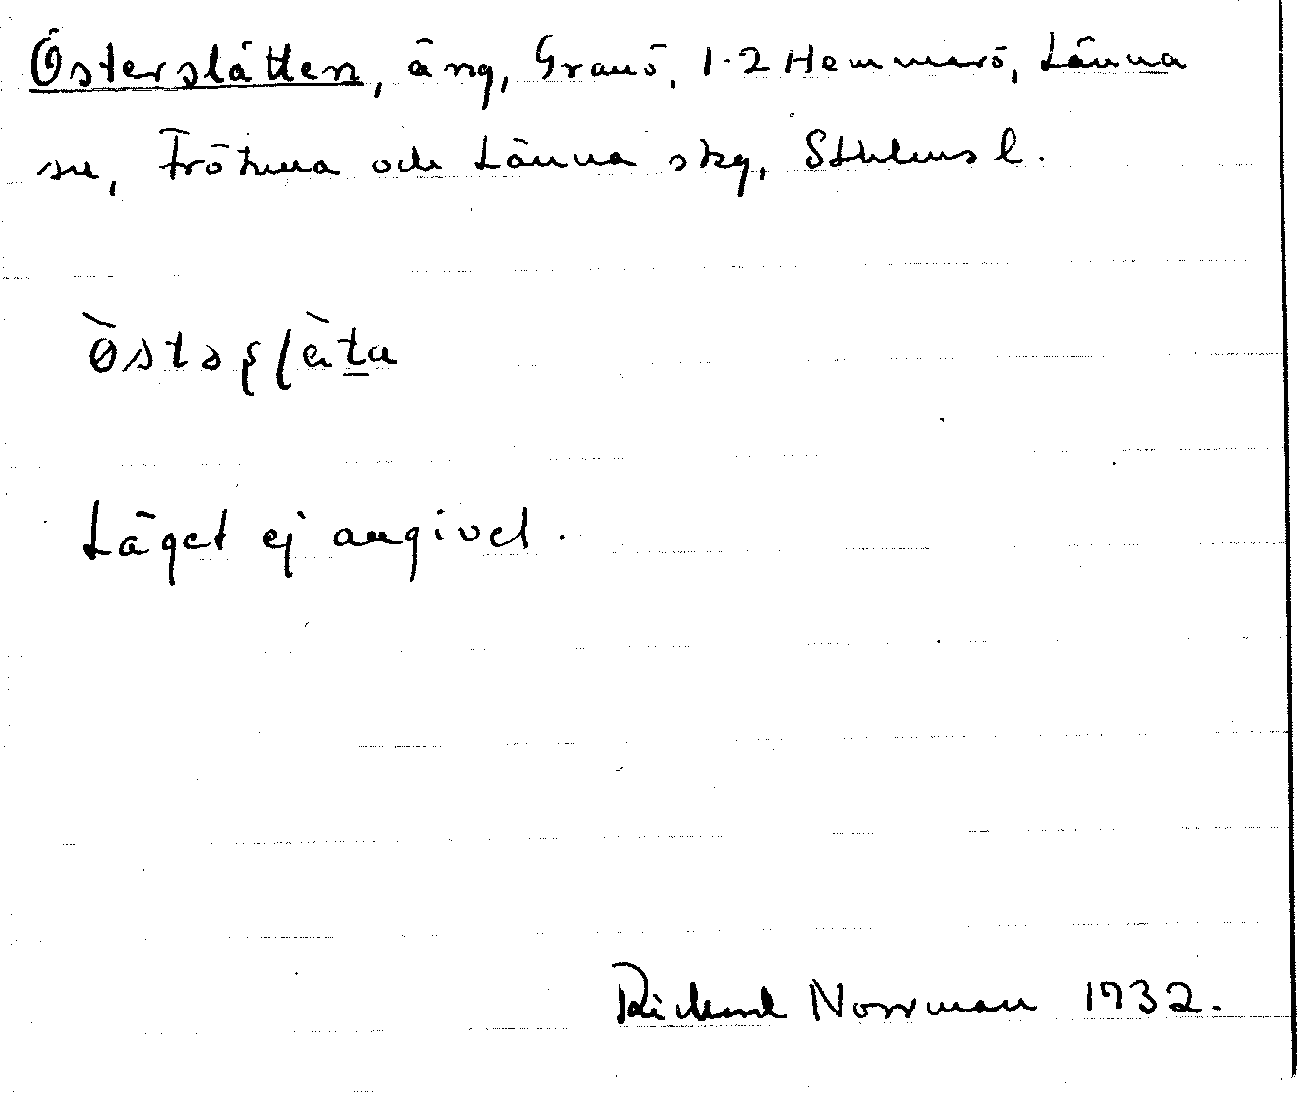 Österslåtten, äng, Granö, 1-2 Hemmarö, Länna
sn, Frötuna och Länna skg, Sthlms l.
Läget ej angivet.
Rickard Norrman 1932.